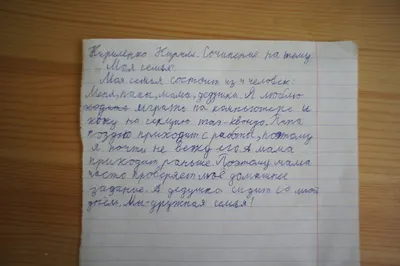 Кириленко Кирилл. Сочинение на тему
Моя семья.
Моя семья состоит из 4 человек:
Меня, папы, мама, дедушка. Я люблю
играть на компьютере и
хожу на секцию таэ-квондо. Папа
поздно приходит с работы, поэтому
я почти не вижу его. А мама
приходит раньше. Поэтому мама
часто проверяет мое домашнее
задание. А дедушка сидит со мной
днём. Мы-дружная семья!